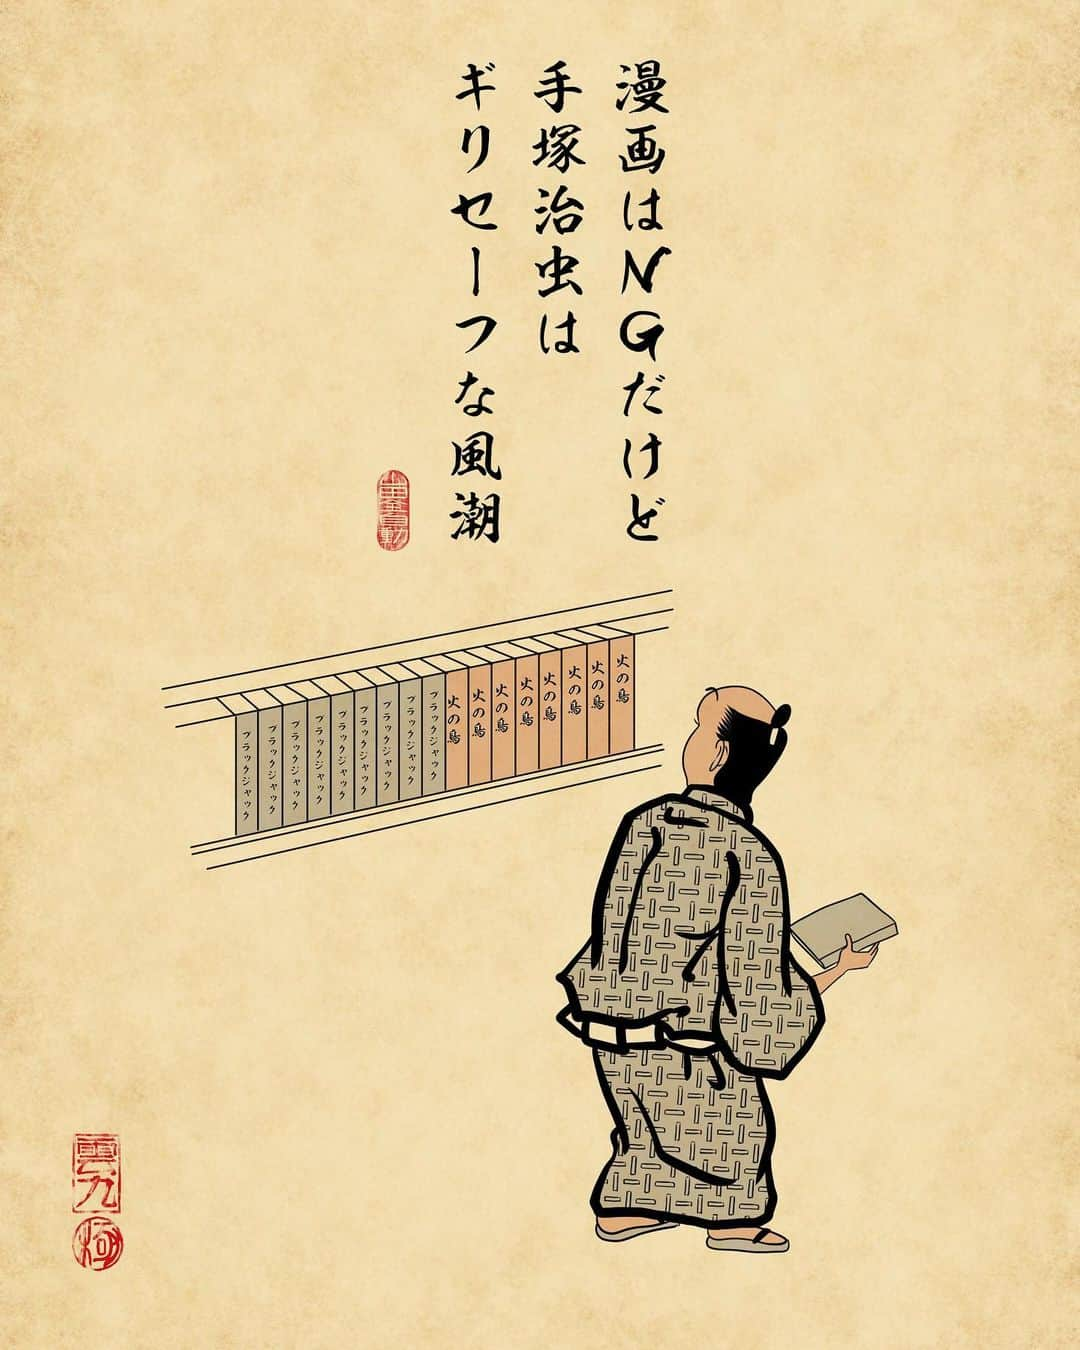 漫画はNGだけど
手塚治虫は
ギリセーフな風潮
火の鳥
火の鳥
火の鳥
火の鳥
火の鳥
火の鳥
火の鳥
火の鳥
ブラックジャック
ブラックジャック
ブラックジャック
ブラックジャック
ブラックジャック
ブラックジャック
ブラックジャック
ブラックジャック
ブラックジャック